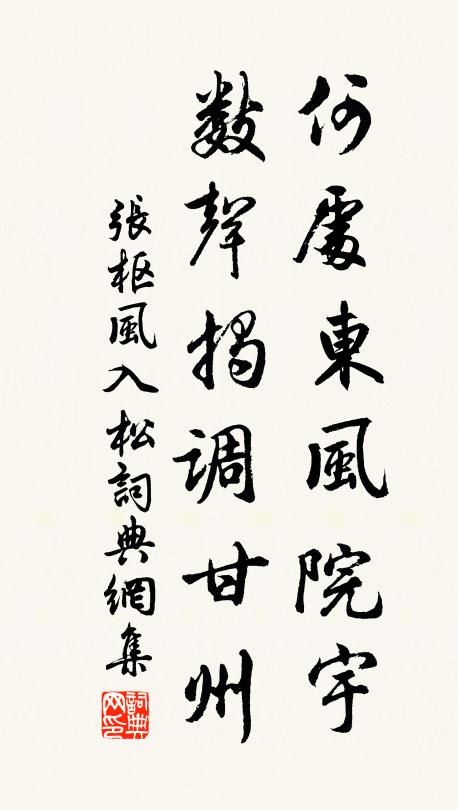 何處東風院宇
數聲揭調甘州
張枢風入松詞典網集
詞典网印